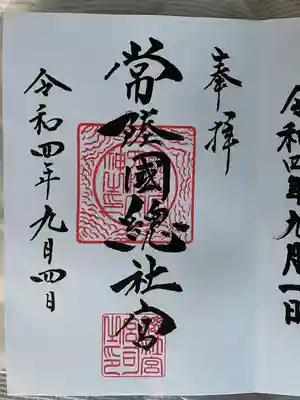 令和四年九月一日
奉拝
常陸國總社宮
令和四年九月四日